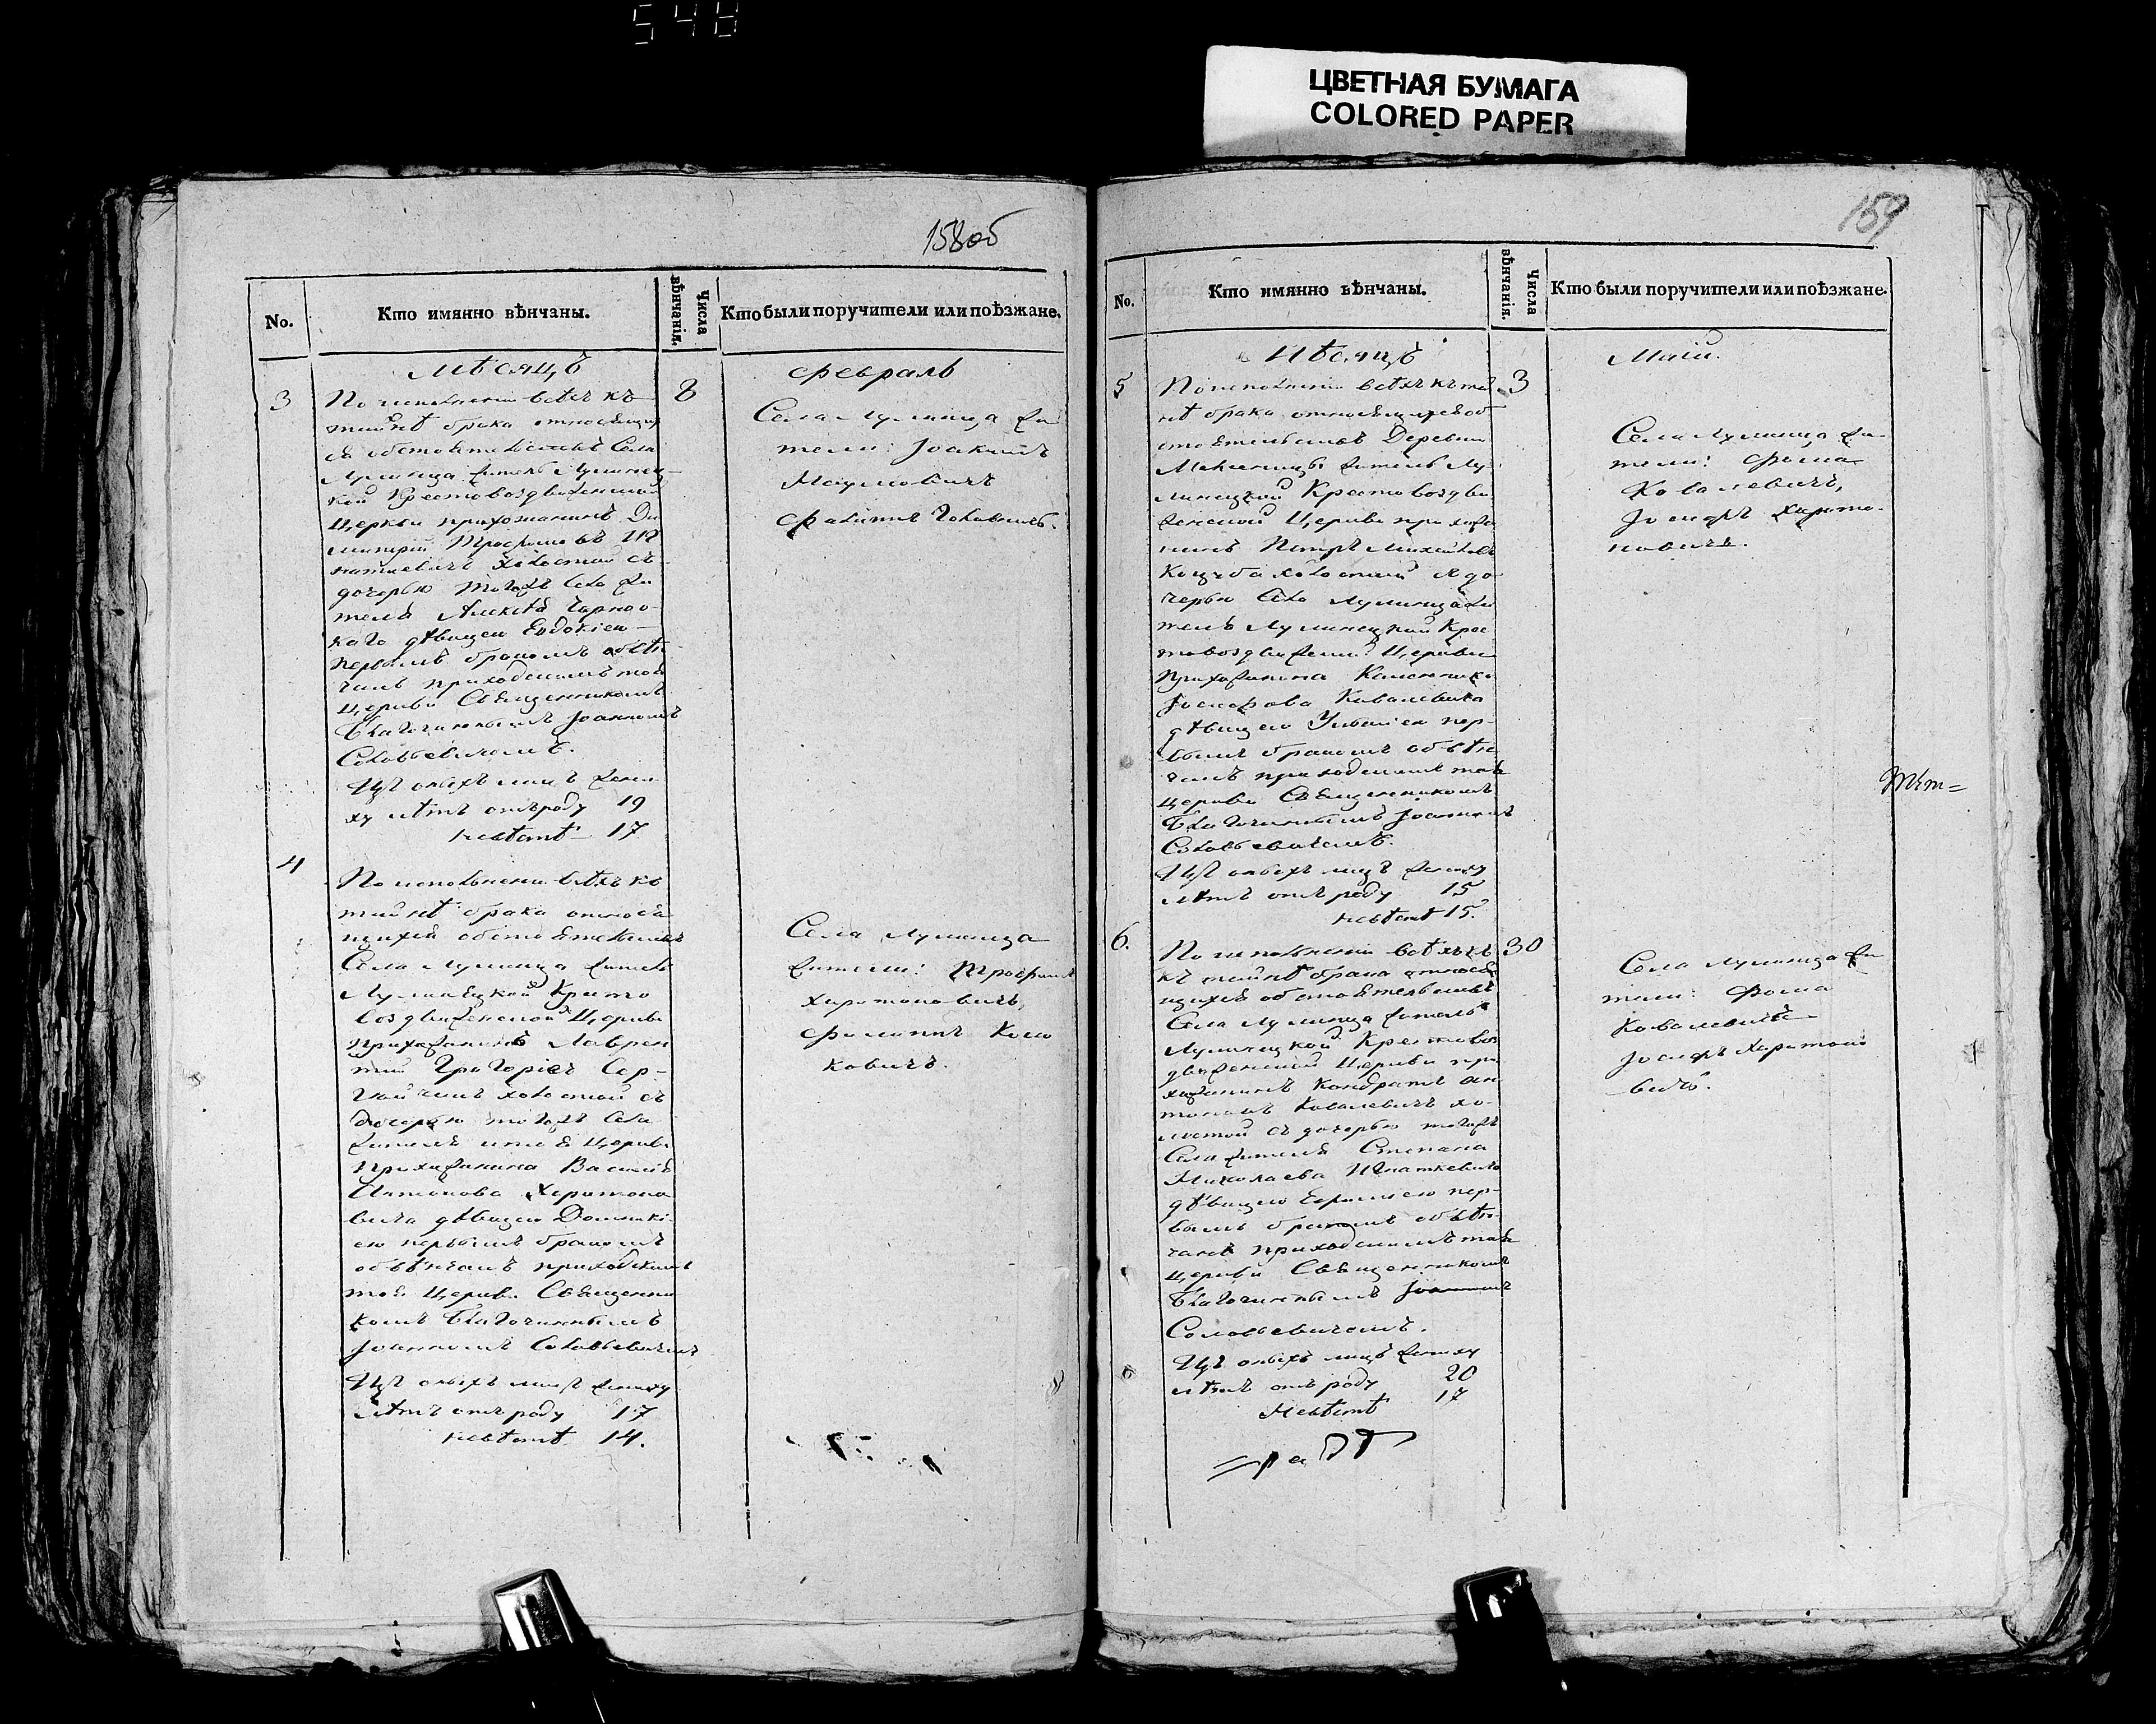 548
ЦВЕТНАЯ БУМАГА
COLORED PAPER
158об
No.
Кто имянно вѣнчаны.
Числа вѣнчанія.
Кто были поручители или поѣзжане.
Мѣсяцъ
февраль
3
8
По исполненіи всѣхъ къ
тайнѣ брака относящих
ся обстоятельствъ Села
Лулинца житель Лулинец
кой Крестовоздвиженской
Церкви прихожанинъ Ди
митрій Трофимовъ Иг
натовичъ холостой съ
дочерью тогожъ села жи
теля Алексѣя
дѣвицею Евдокіею
первымъ бракомъ обвѣн
чанъ приходскимъ тоя
церкви Священникомъ
Благочиннымъ Іоанномъ
Соловьевичемъ.
Изъ оныхъ лицъ жени
ху лѣтъ отъ роду 19
невѣстѣ 17
Села Лулинца жи
тели: Іоакимъ
Наумовичъ
Филипъ
4
По исполненіи всѣхъ къ
тайнѣ брака относя
щихся обстоятельствъ
Села Лулинца житель
Лулинецкой Кресто
воздвиженской Церкви
Прихожанинъ Лаврен
тій Григоріевъ Сер-
холостой съ
дочерью тогожъ Села
жителя и тоя Церкви
Прихожанина Василія
Антонова Харитоно
вича дѣвицею Домники
ею первымъ бракомъ
обвѣнчанъ приходскимъ
тоя Церкви Священни
комъ Благочиннымъ
Іоанномъ Соловьевичемъ
Изъ оныхъ лицъ жениху
лѣтъ отъ роду 17
невѣстѣ 14.
Села Лулинца
жители: Трофимъ
Харитоновичъ,
Филиппъ
ковичъ.
159
No.
Кто имянно вѣнчаны.
Числа вѣнчанія.
Кто были поручители или поѣзжане.
Мѣсяцъ
Маій.
5
3
По исполненіи всѣхъ къ тай
нѣ брака относящихся об
стоятельствъ Деревни
житель Лу
линецкой Крестовоздви
женской Церкви прихожа
нинъ Петръ Михайловъ
Коцуба холостой съ до
черью Села Лулинца жи
тель Лулинецкой Крес
товоздвиженской Церкви
Прихожанина
Іосифова Ковалевича
дѣвицею Уліаніею пер-
вымъ бракомъ обвѣн
чанъ приходскимъ тоя
церкви Священникомъ
Благочиннымъ Іоанномъ
Соловьевичемъ.
Изъ оныхъ лицъ жениху
лѣтъ отъ роду 15
невѣстѣ 15.
Села Лулинца жи
тели: Фома
Ковалевичъ,
Іосифъ Харито-
новичъ.
6.
30
По исполненіи всѣхъ
къ тайнѣ брака относя
щихся обстоятельствъ
Села Лулинца житель
Лулинецкой Крестовоз
движенской Церкви при
хожанинъ Кондратъ Ан
тоновъ Ковалевичъ хо-
лостой съ дочерью тогожъ
Села жителя Степана
Николаева Игнаткевича
дѣвицею Евфиміею пер-
вымъ бракомъ обвѣн
чанъ приходскимъ тоя
церкви Священникомъ
Благочиннымъ Іоанномъ
Соловьевичемъ.
Изъ оныхъ лицъ жениху
лѣтъ отъ роду 20
Невѣстѣ 17
Села Лулинца жи
тели: Фома
Ковалевичъ
Іосифъ Харитоно
вичъ.